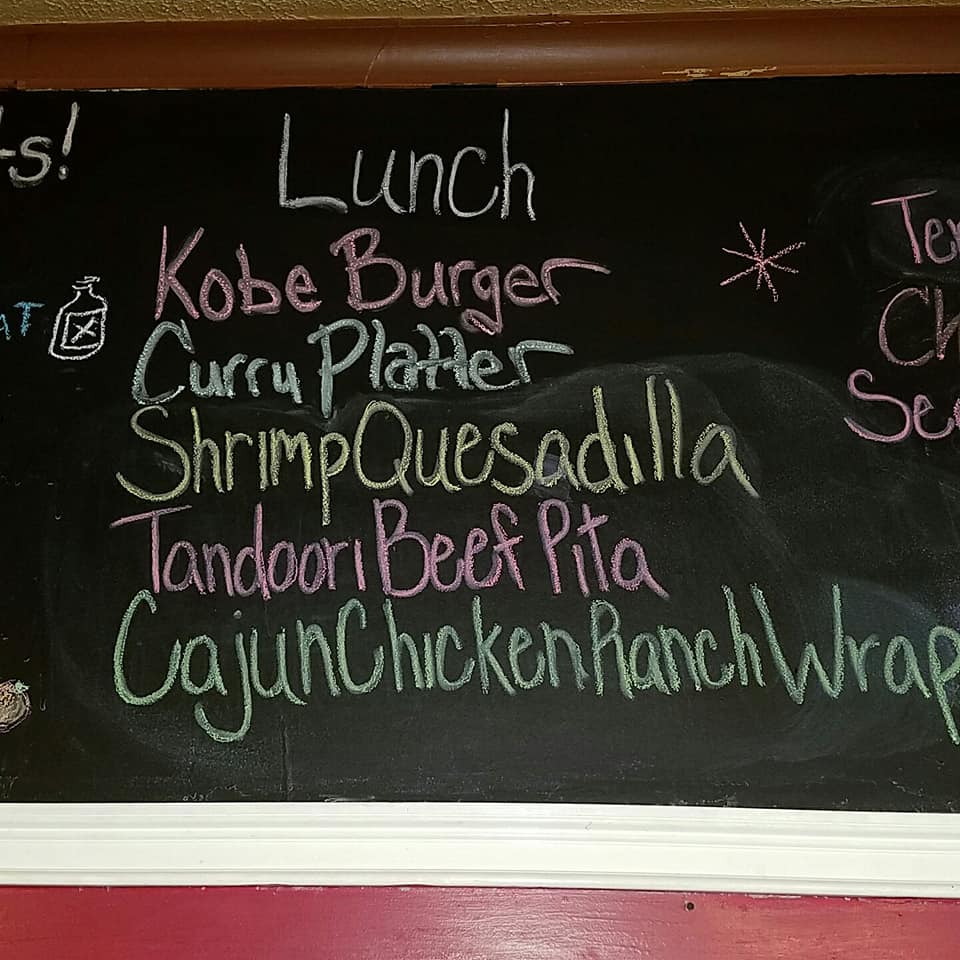 Lunch
Kobe Burger
Curry Platter
Shrimp Quesadilla
Tandoori Beef Pita
Cajun Chicken Ranch Wrap